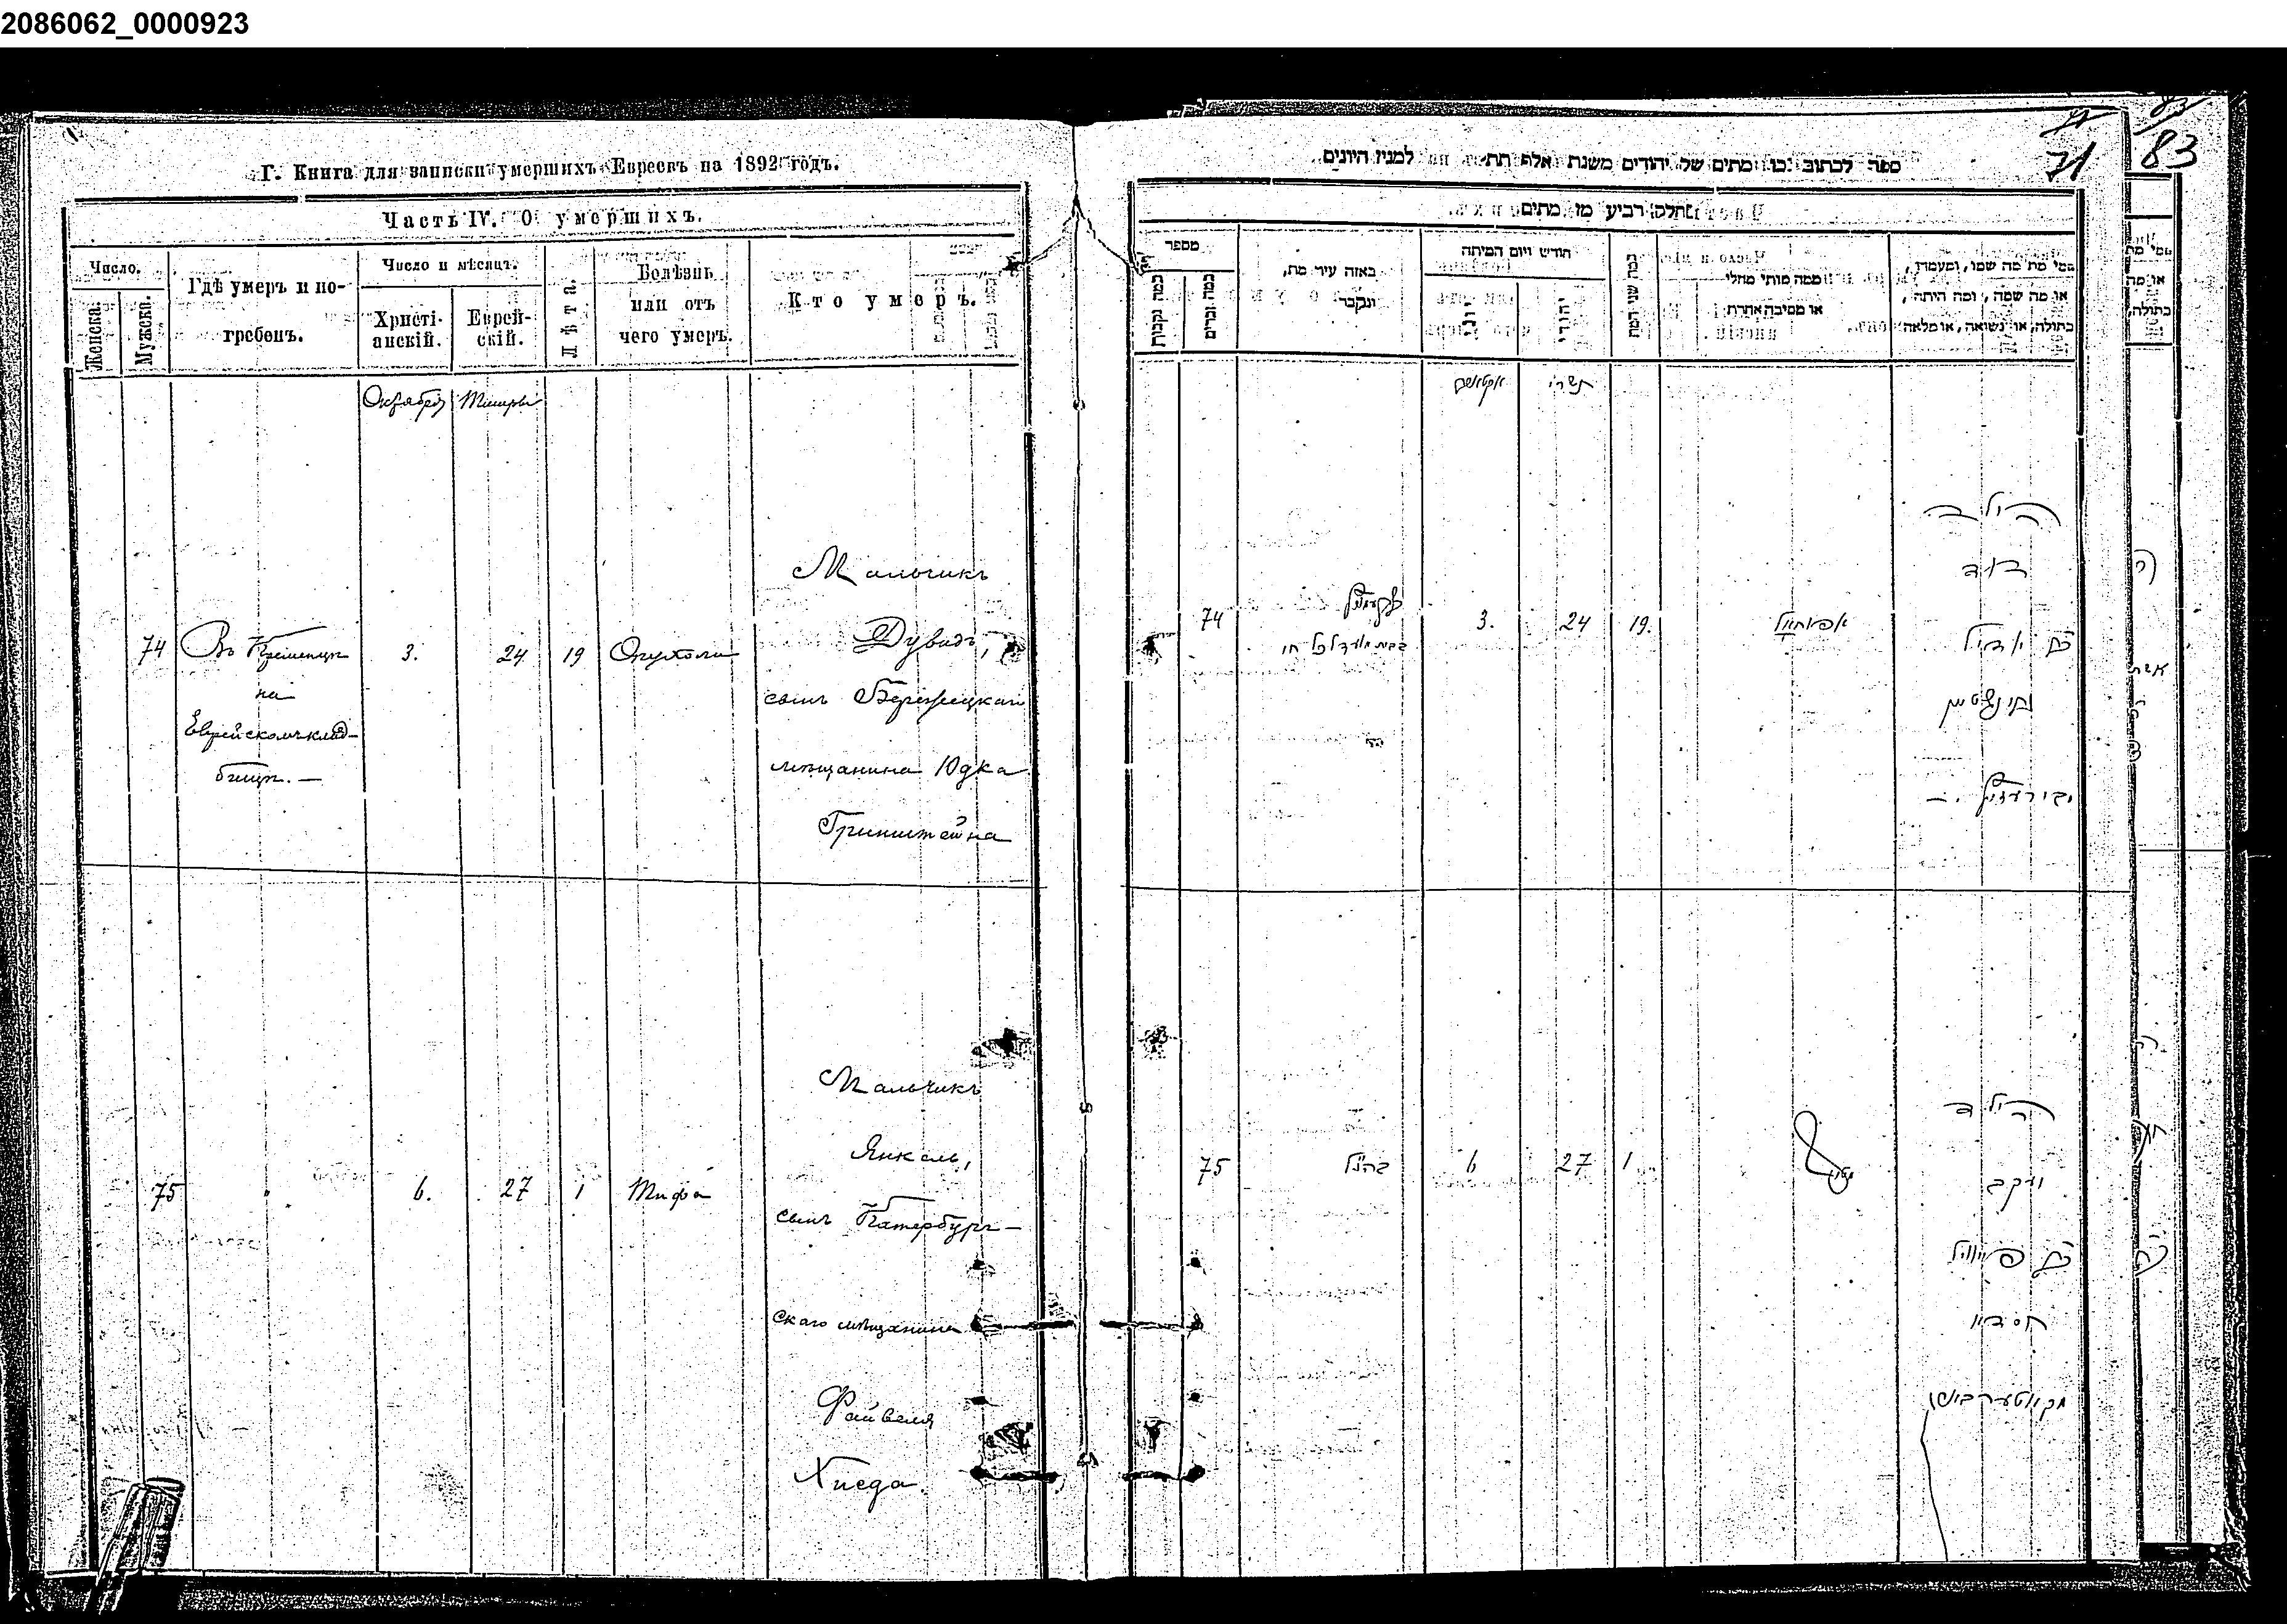 2086062_0000923
Г. Книга для записки умершихъ Евреевъ на 1892 годъ.
Часть IV. О умершихъ.
Число.
Женска.
Мужска.
Гдѣ умеръ и по-
гребенъ.
Число и мѣсяцъ.
Христі-
анскій.
Еврей-
скій.
Лѣта.
Болѣзнь
или отъ
чего умеръ.
Кто умеръ.
Октябрь
Тишри
74
Въ Кременцѣ
на
Еврейскомъ клад-
бищѣ. —
3.
24
19
Опухоли
Мальчикъ
Дувидъ,
сынъ Бережецкаго
мѣщанина Юдка
Гринштейна
75
"
6.
27
1
Тифа
Мальчикъ
Янкель,
сынъ Катербург-
скаго мѣщанина
Файвеля
Хиеда.
71
83
ספר לכתוב בו מתים של יהודים משנת אלף תת למנין היונים
חלק רביעי מן מתים
מספר
כמה נקבות
כמה זכרים
באזה עיר מת,
ונקבר
חודש ויום המיתה
יוני
יהודי
כמה שני המת
ממה מותו מחלי
או מסיבה אחרת
מי מת מה שמו, ומעמדו,
או מה שמה, ומה היתה,
בתולה, או נשואה, או מלאה
תשרי
74
3.
24
19.
הילד
דוד
בן יודיל
גרינשטיין
75
כהנ"ל
6
27
1
הילד
יעקב
בן פייוויל
מקאטערבורג